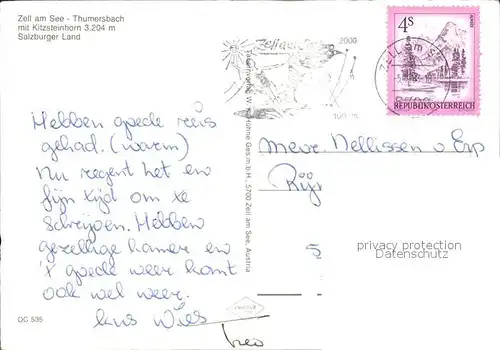 Zell am See - Thumersbach
mit Kitzsteinhorn 3.204 m
Salzburger Land
2000
m
4S
REPUBLIK ÖSTERREICH
ZELL AM SEE
Hebben goede reis
gehad. (warm)
Nu regent het en
fijn tijd om te
schrijven. Hebben
gezellige kamer en
't goede weer komt
ook wel weer.
kus Wies
Leo
Mevr. Nellissen v Erp
Ges.m.b.H., 5700 Zell am See, Austria
privacy protection
Datenschutz
OC 535